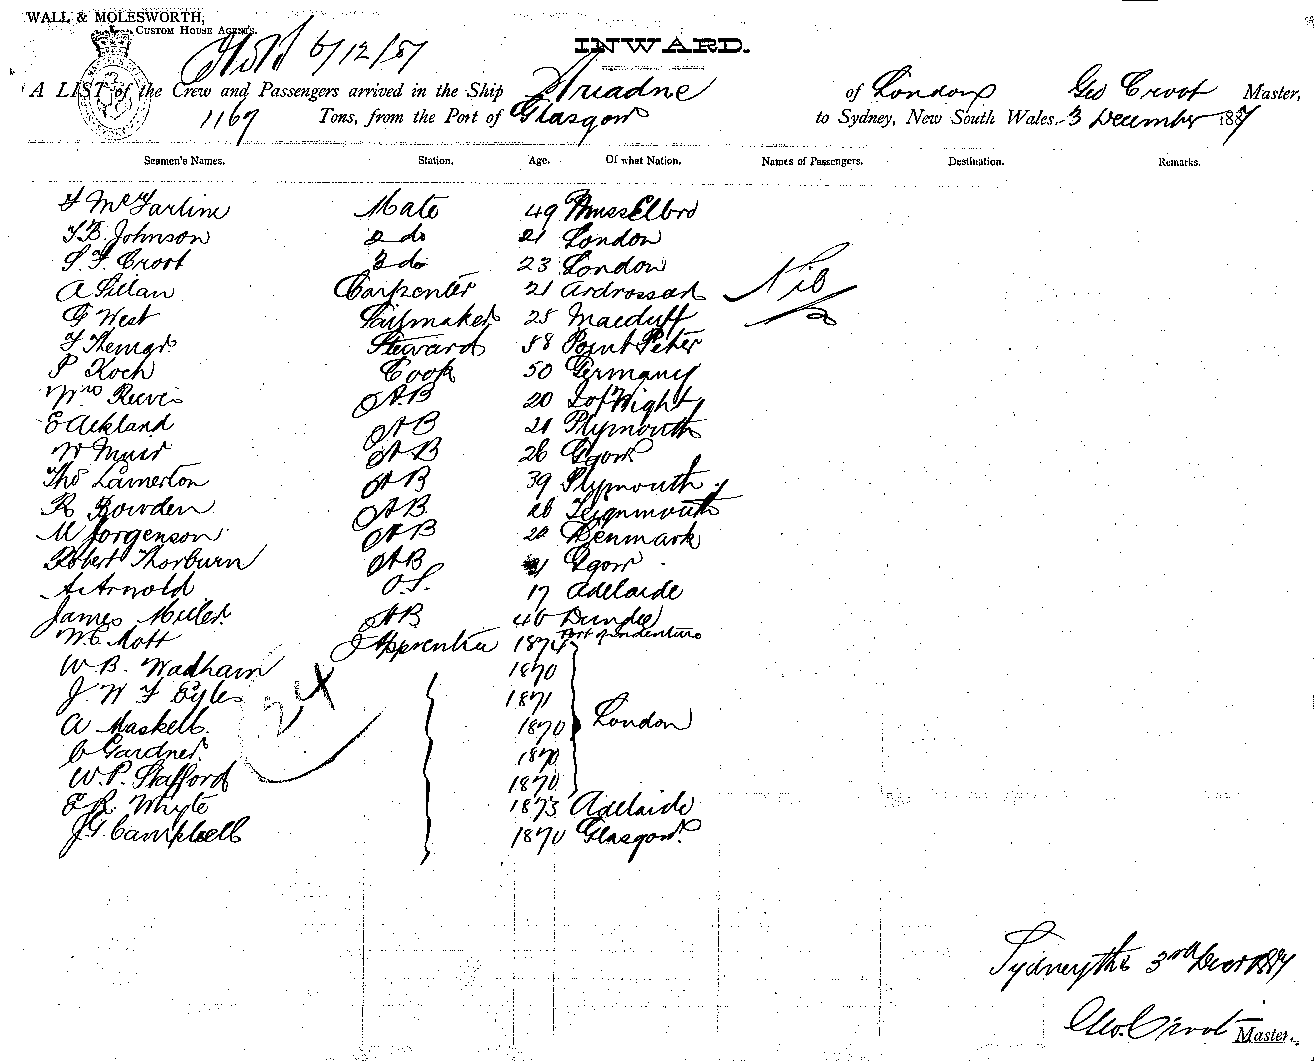 WALL & MOLESWORTH,
CUSTOM HOUSE AGENTS.
6/12/87
INWARD.
A LIST of the Crew and Passengers arrived in the Ship Ariadne of London Geo Croot Master,
1167 Tons, from the Port of Glasgow to Sydney, New South Wales. 3 December 1887
Seamen's Names. Station. Age. Of what Nation. Names of Passengers. Destination. Remarks.
Mate 49 Musselbro
Johnson 2 do 21 London
S. F. Croot 3 do 23 London
A Sillan Carpenter 21 Ardrossan Nil
G West Sailmaker 25 Macduff
Steward 58 Point Peter
P Koch Cook 50 Germany
Wm Reeves AB 20 I of Wight
E Ackland AB 21 Plymouth
W Muir AB 26 Ggow
Thos Lamerton AB 39 Plymouth
R Bowden AB 26 Teignmouth
M Jorgenson AB 24 Denmark
Robert Thorburn AB 21 Ggow
A Arnold O.S. 17 Adelaide
James Miller AB 40 Dundee
Port of indenture
W. C. Mott Apprentice 1874
W. B. Wadham 1870
J. W. F. Eyles 1871
24
A Maskell. 1870 London
C Gardner. 1870
W. P. Stafford 1870
E R Whyte 1873 Adelaide
J G Campbell 1870 Glasgow.
Sydney the 3rd Decr 1887
Geo. Croot Master.